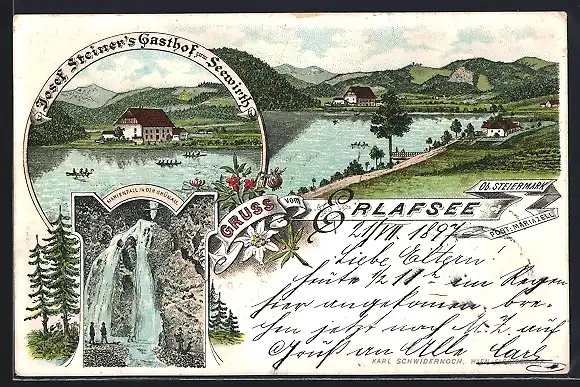 Josef Steiner's Gasthof zum Seewirth
MARIENFALL IN DER GRÜNAU
GRUSS vom
ERLAFSEE
Ob. STEIERMARK
POST: MARIAZELL
21/VII. 1897
Liebe Eltern!
heute ½ 11 h im Regen
hier angekommen, bre-
chen jetzt nach M. Z. auf
Gruß an Alle Carl
KARL SCHWIDERNOCH, WIEN